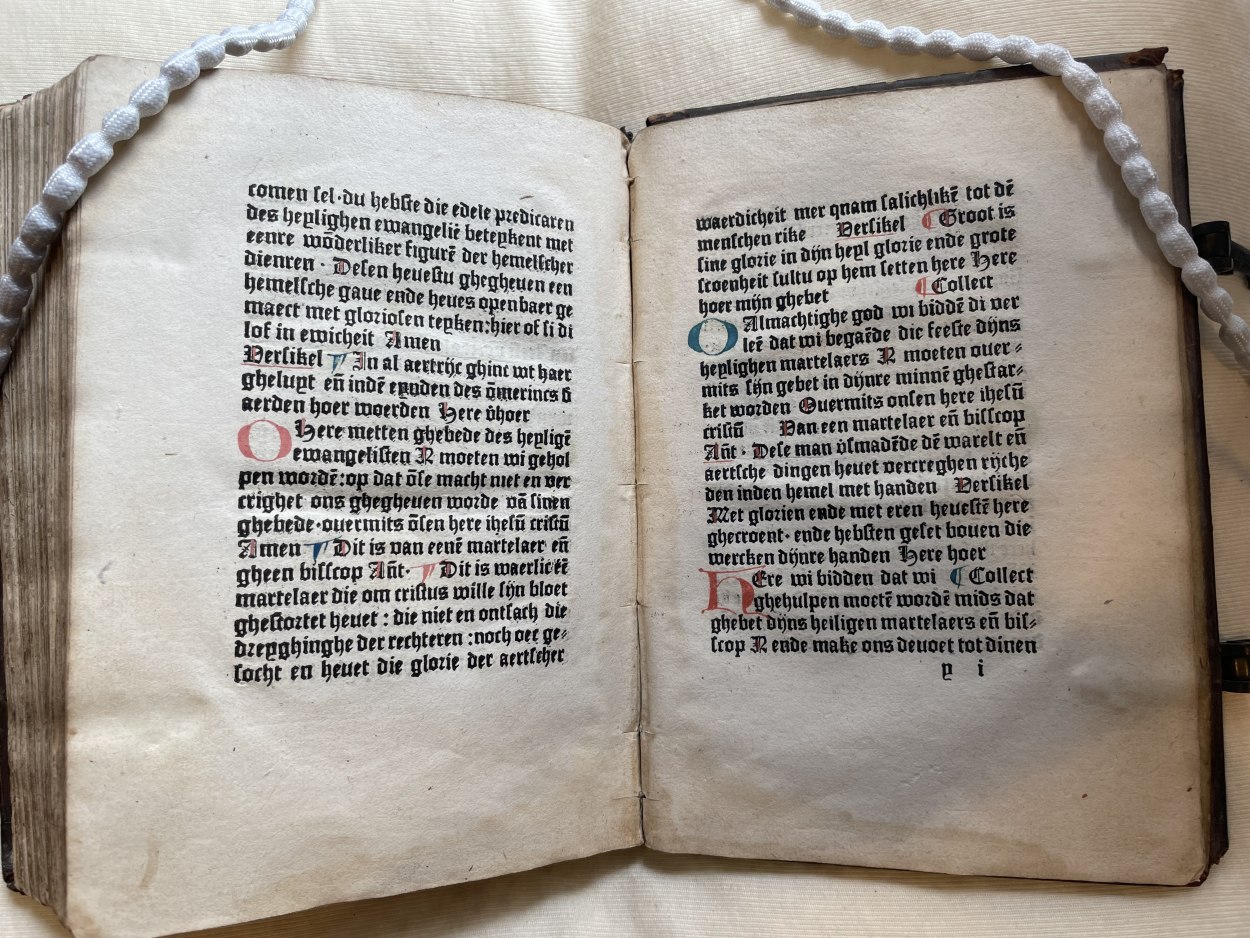 comen sel·du hebste die edele predicaren
des heylighen ewangeliē beteykent met
eenre wōderliker figurē der hemelscher
dienren · Desen heuestu ghegheuen een
hemelsche gaue ende heues openbaer ge
maect met gloriosen teyken:hier of si di
lof in ewicheit Amen
Versikel ¶ In al aertrijc ghinc wt haer
gheluyt eñ indē eynden des ōmerincs d̄
aerden hoer woerden Here v̄hoer
O Here metten ghebede des heyligē
ewangelisten N moeten wi gehol
pen wordē:op dat ōse macht niet en ver
crighet ons ghegheuen worde vā sinen
ghebede·ouermits ōsen here ihesū cristū
Amen ¶ Dit is van eenē martelaer eñ
gheen bisscop Añt· ¶ Dit is waerlickē
martelaer die om cristus wille sijn bloet
ghestortet heuet : die niet en ontsach die
dreyghinghe der rechteren :noch oec ge⸗
socht en heuet die glorie der aertscher
waerdicheit mer quam salichlikē tot dē
menschen rike Versikel ¶ Groot is
sine glorie in dijn heyl glorie ende grote
scoenheit sultu op hem setten here Here
hoer mijn ghebet ¶ Collect
O Almachtighe god wi biddē di ver
leē dat wi begaēde die feeste dijns
heylighen martelaers N moeten ouer⸗
mits sijn gebet in dijnre minnē ghestar⸗
ket worden Ouermits onsen here ihesū
cristū Van een martelaer eñ bisscop
Añt · Dese man v̄smadēde dē warelt eñ
aertsche dingen heuet vercreghen rijche
den inden hemel met handen Versikel
Met glorien ende met eren heuestē here
ghecroent· ende hebsten geset bouen die
wercken dijnre handen Here hoer
HEre wi bidden dat wi ¶ Collect
ghehulpen moetē wordē mids dat
ghebet dijns heiligen martelaers eñ bis⸗
scop N ende make ons deuoet tot dinen
y i